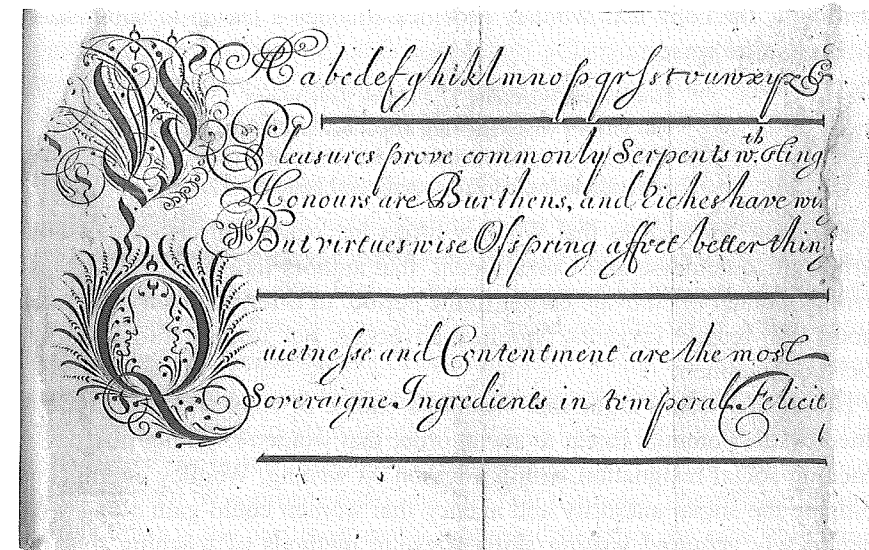 A a bcdefghiklmno pqrſstvuwxyz &
Pleasures prove commonly Serpents wth. sting
Honours are Burthens, and Riches have win
But virtues wise Ofspring affect better thing
Quietneſse and Contentment are the most
Soveraigne Ingredients in temporal Felicit